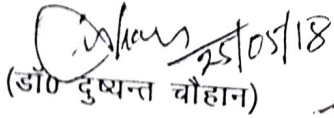 25/05/18
(डॉ0 दुष्यन्त चौहान)